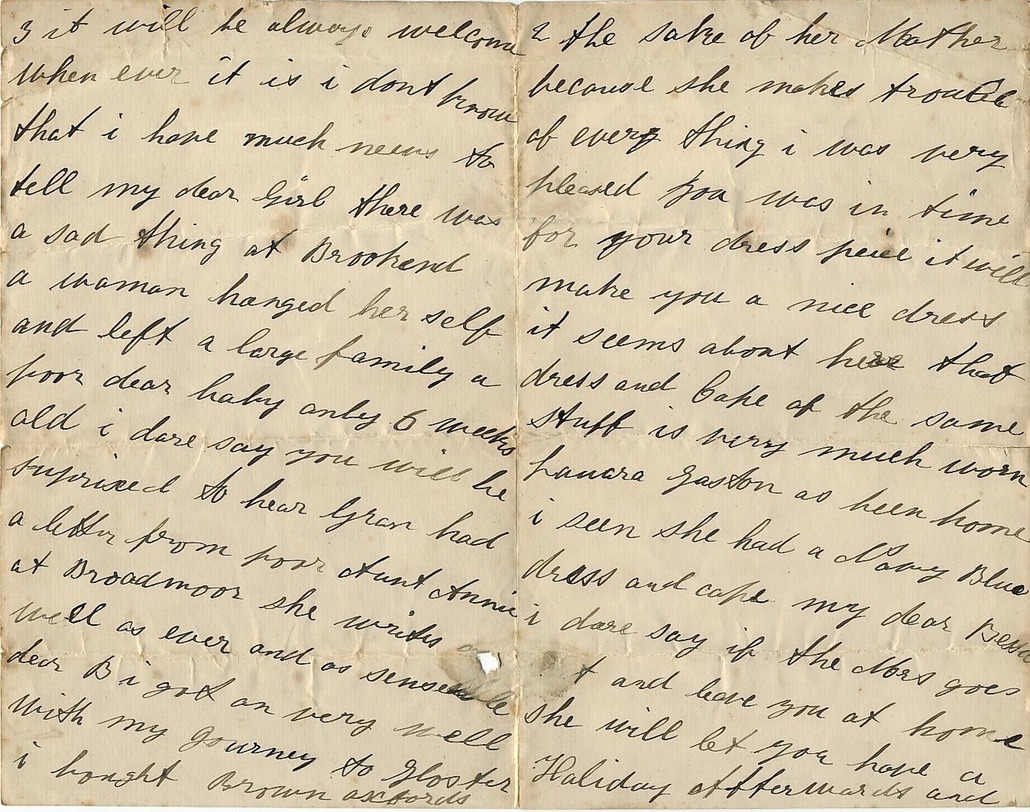 2 the sake of her Mother
because she makes trouble
of every thing i was very
pleased you was in time
for your dress peice it will
make you a nice dress
it seems about here that
dress and Cape of the same
stuff is very much worn
Gaston as been home
i seen she had a Navy Blue
dress and cape my dear
i dare say if the Mrs goes
and leave you at home
she will let you have a
Haliday aftterwards and
3 it will be always welcome
when ever it is i dont know
that i have much news to
tell my dear Girl there was
a sad thing at Brookend
a woman hanged her self
and left a large family a
poor dear baby only 6 weeks
old i dare say you will be
suprized to hear Gran had
a letter from poor Aunt Annie
at Broadmoor she writes as
well as ever and as senseable
dear B i got on very well
with my gourney to Gloster
i bought Brown oxfords